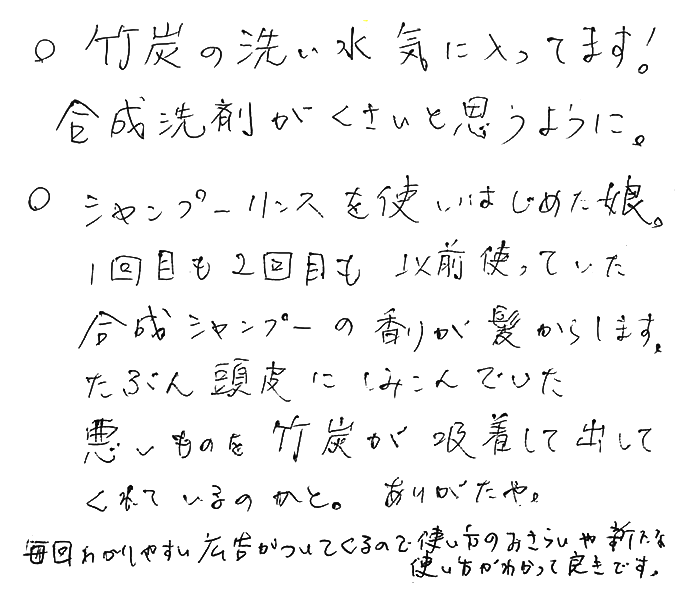 ○ 竹炭の洗い水 気に入ってます!
合成洗剤がくさいと思うように。
○ シャンプーリンスを使いはじめた娘。
1回目も2回目も 以前使っていた
合成シャンプーの香りが髪からします。
たぶん頭皮にしみこんでいた
悪いものを竹炭が吸着して出して
くれているのかと。ありがたや。
毎回わかりやすい広告がついてくるので使い方のおさらいや新たな
使い方がわかって良きです。